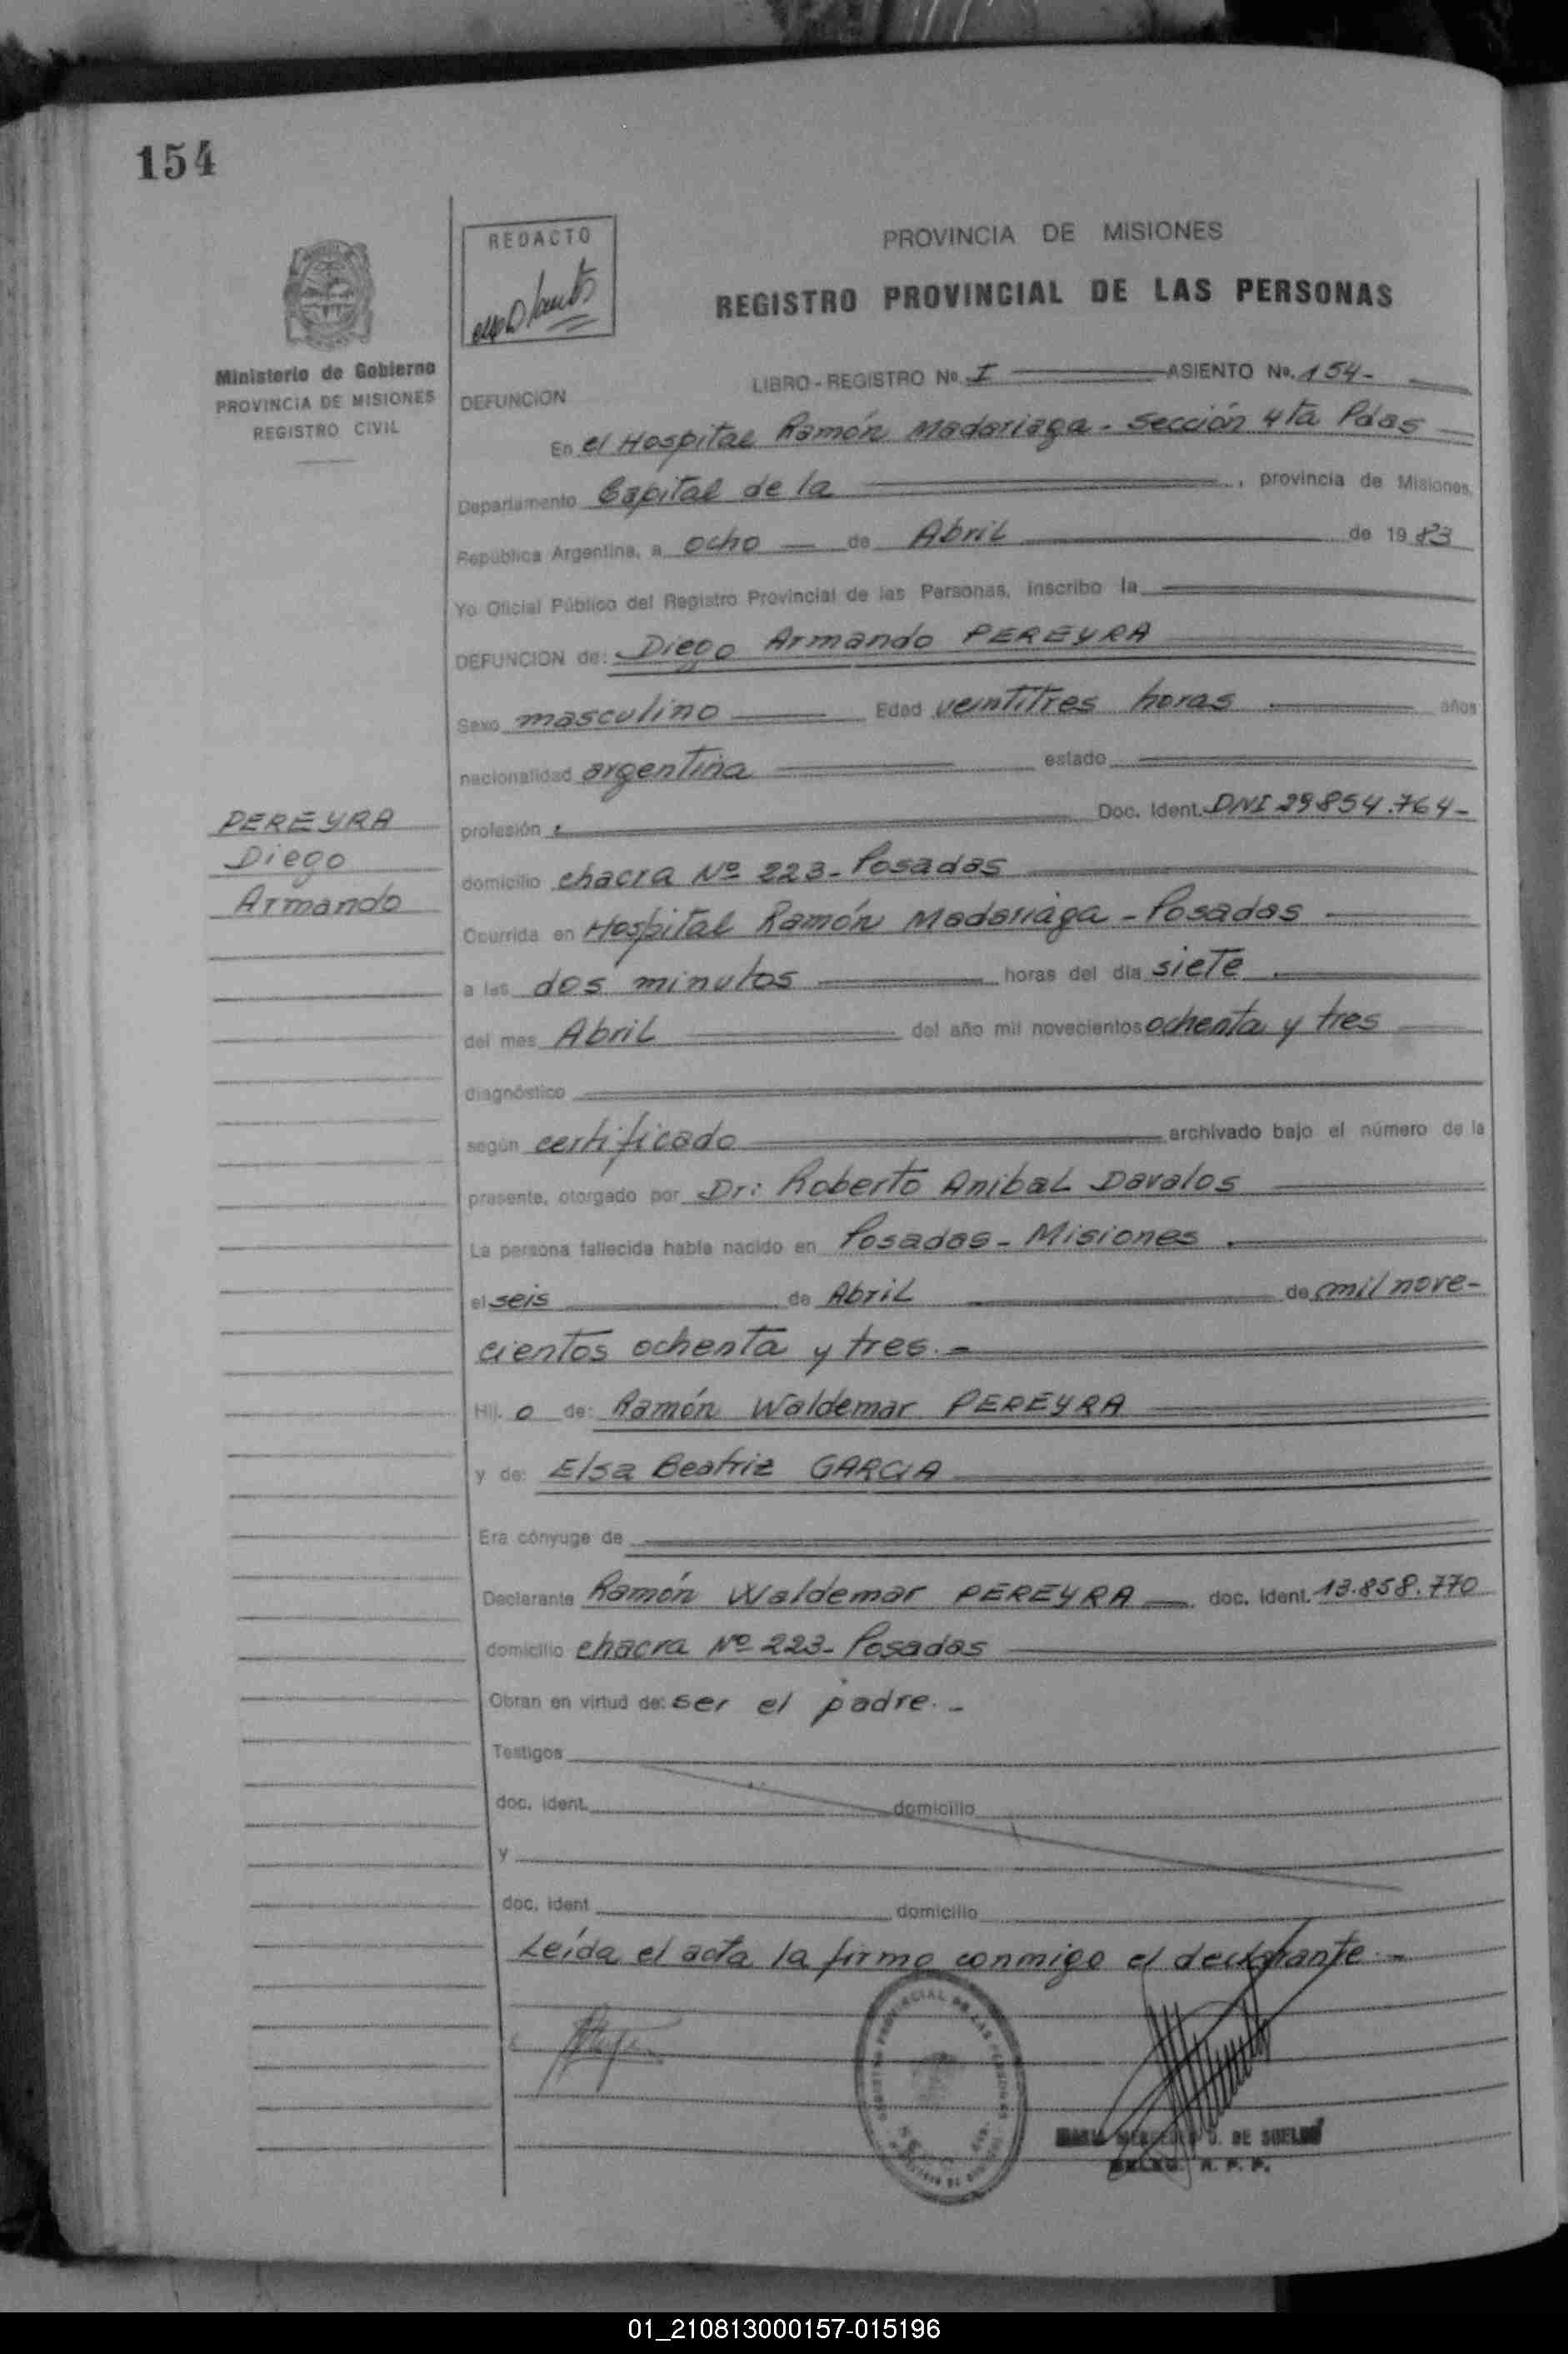 154
REDACTO
PROVINCIA DE MISIONES
REGISTRO PROVINCIAL DE LAS PERSONAS
Ministerio de Gobierno
PROVINCIA DE MISIONES
REGISTRO CIVIL
LIBRO - REGISTRO No. I ASIENTO No. 154-
DEFUNCION
En el Hospital Ramón Madariaga - Sección 4ta Pdas
Departamento Capital de la, provincia de Misiones,
República Argentina, a ocho de Abril de 1983
Yo Oficial Público del Registro Provincial de las Personas, inscribo la
DEFUNCION de: Diego Armando PEREYRA
Sexo masculino Edad veintitres horas años
nacionalidad argentina estado
profesión Doc. Ident. DNI 29854.764-
PEREYRA
Diego
Armando
domicilio chacra Nº 223- Posadas
Ocurrida en Hospital Ramón Madariaga - Posadas
a las dos minutos horas del día siete
del mes Abril del año mil novecientos ochenta y tres
diagnóstico
según certificado archivado bajo el número de la
presente, otorgado por Dr: Roberto Anibal Davalos
La persona fallecida había nacido en Posadas - Misiones
el seis de Abril de mil nove-
cientos ochenta y tres.-
Hij. o de: Ramón Waldemar PEREYRA
y de: Elsa Beatriz GARCIA
Era cónyuge de
Declarante Ramón Waldemar PEREYRA doc. ident. 13.858.770
domicilio chacra Nº 223- Posadas
Obran en virtud de: ser el padre.-
Testigos
doc. ident. domicilio
y
doc. ident domicilio
Leída el acta la firma conmigo el declarante.-
DE
R. P. P.
01_210813000157-015196